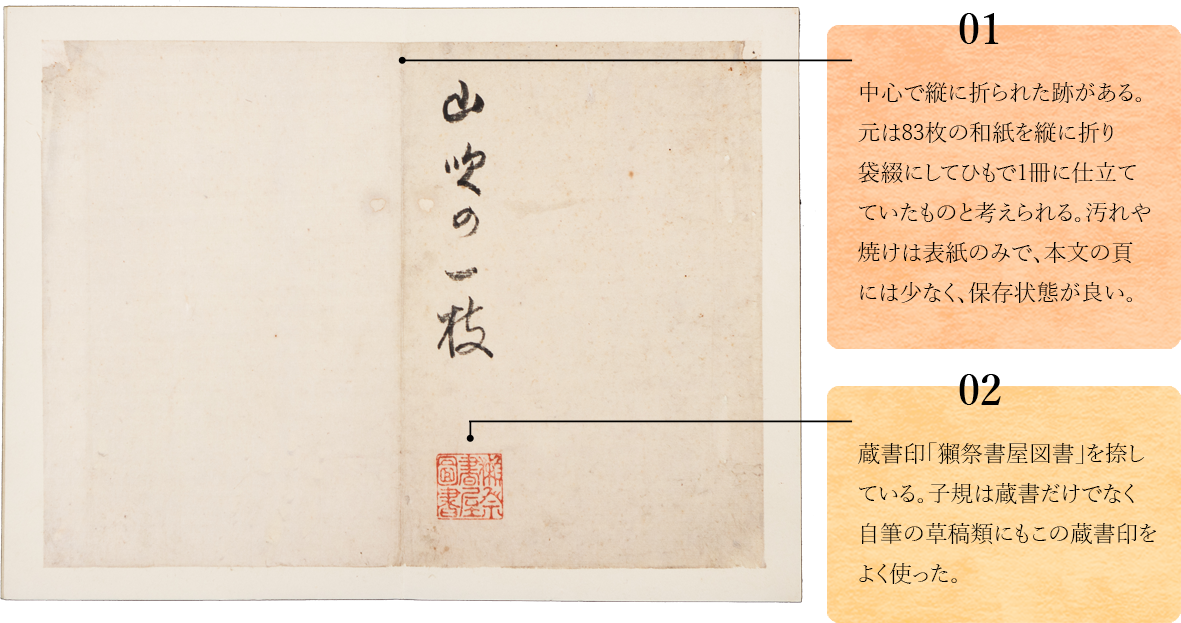 山吹の一枝
獺祭
書屋
圖書
01
中心で縦に折られた跡がある。
元は83枚の和紙を縦に折り
袋綴にしてひもで1冊に仕立て
ていたものと考えられる。汚れや
焼けは表紙のみで、本文の頁
には少なく、保存状態が良い。
02
蔵書印「獺祭書屋図書」を捺し
ている。子規は蔵書だけでなく
自筆の草稿類にもこの蔵書印を
よく使った。